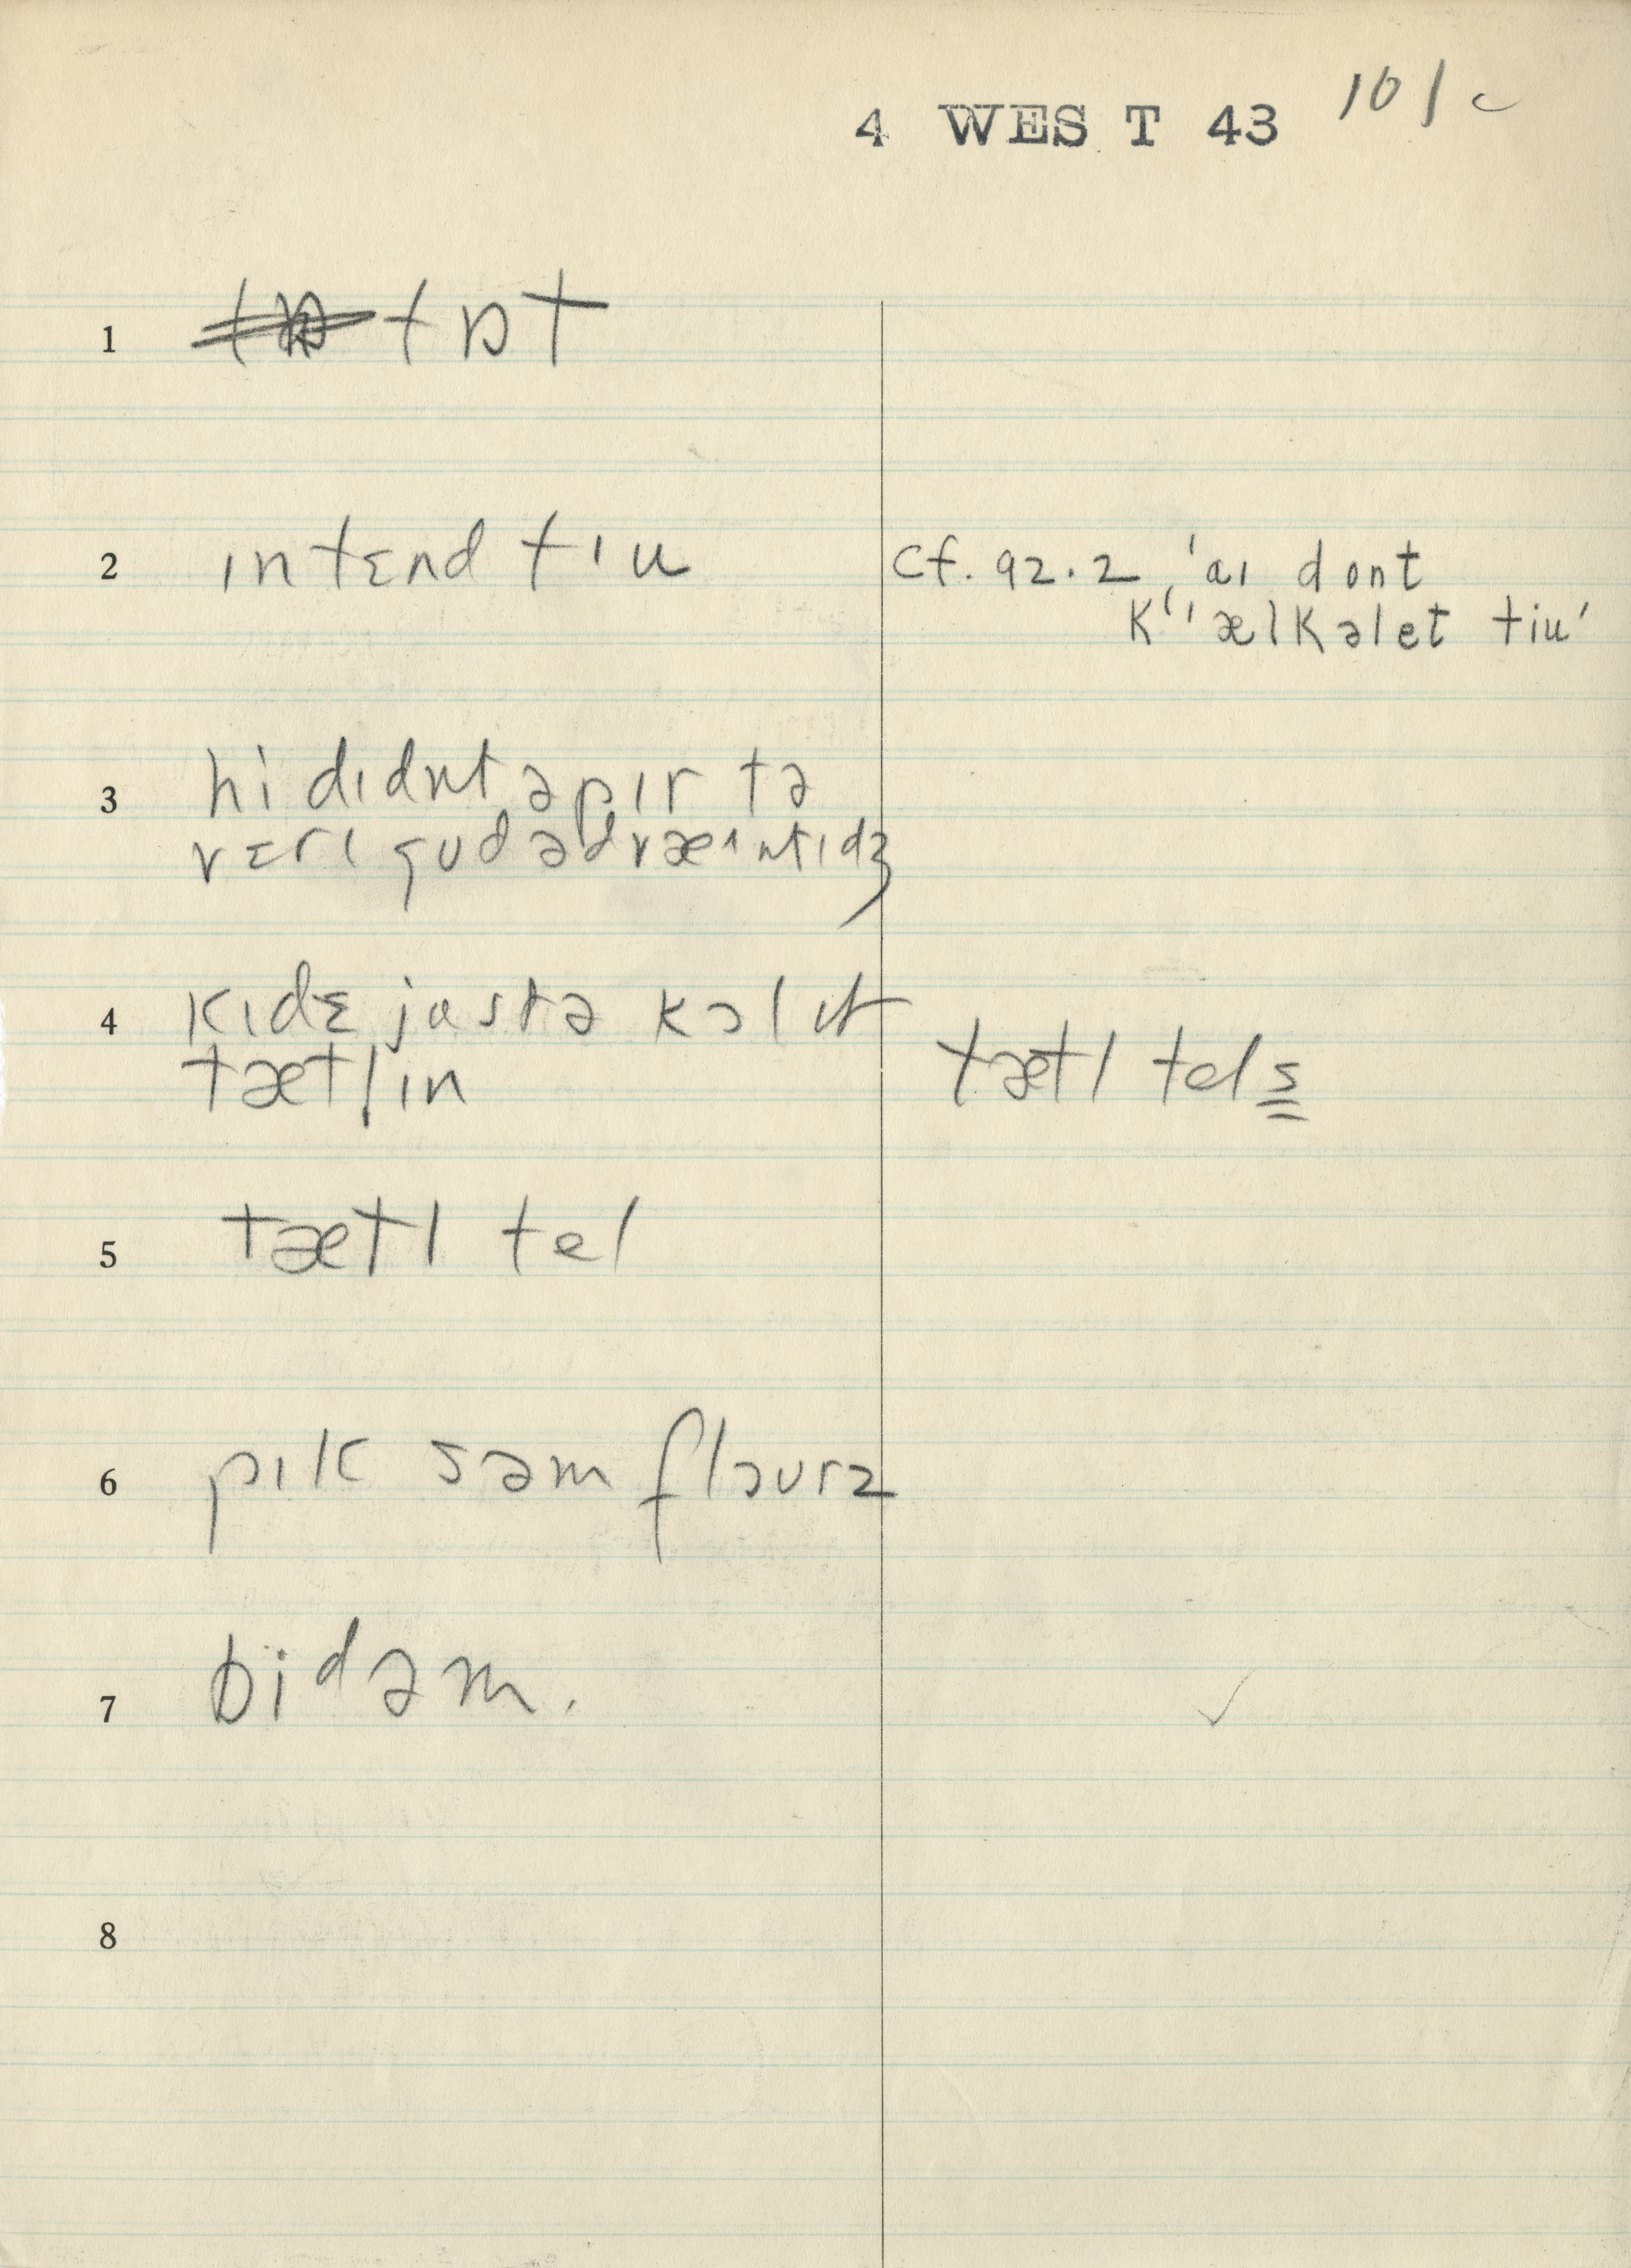 4 WEST 43 101 c
1 tɒt
2 ɪntɛnd tɪu
cf. 92.2 'aɪ dont
k'ælkəlet tiu'
3 hi dɪdnt əpɪr tə
vɛrɪ gud ədvæɪntɪdʒ
4 kɪdz justə kɔl ɪt
tætlɪn
tætl tels
5 tætl tel
6 pɪk səm flaurz
7 bidəm.
8